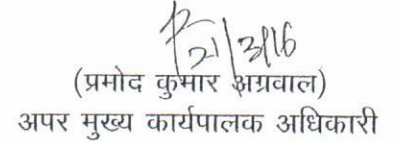 21/3/16
(प्रमोद कुमार अग्रवाल)
अपर मुख्य कार्यपालक अधिकारी